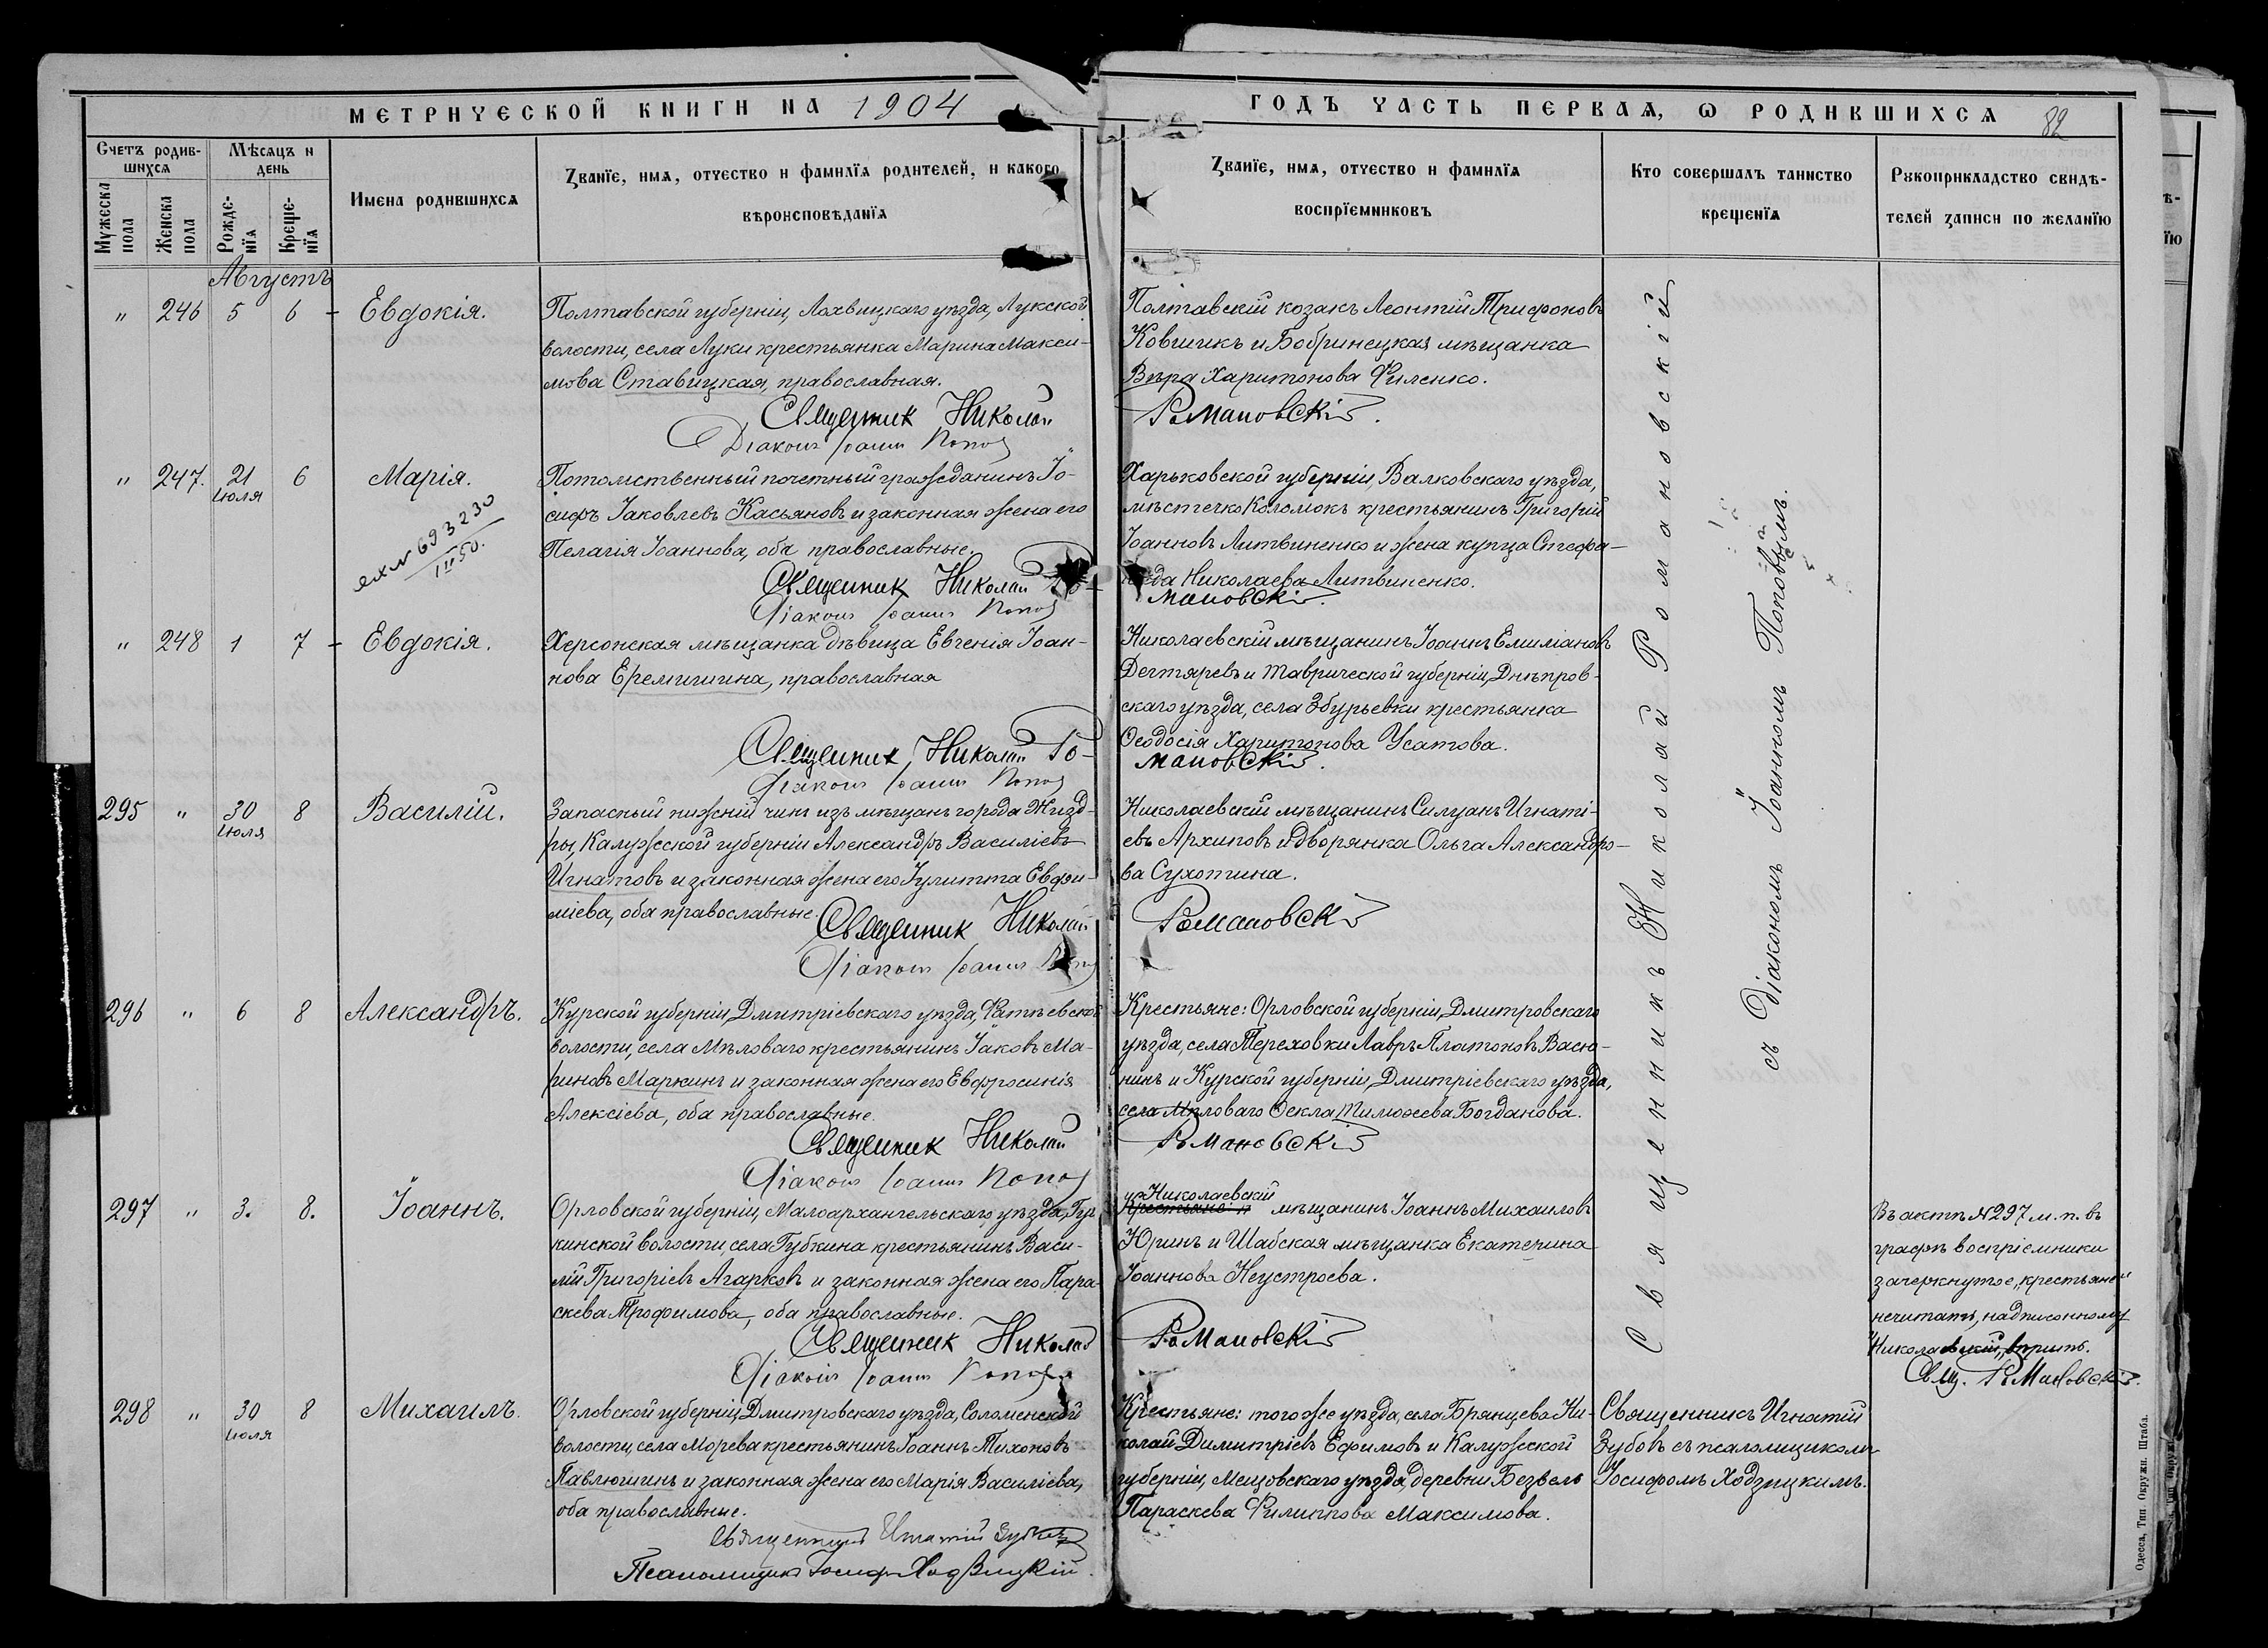 МЕТРИЧЕСКОЙ КНИГИ НА 1904
ГОДЪ ЧАСТЬ ПЕРВАЯ, Ѡ РОДИВШИХСЯ
82
Счетъ родив-
шихся
Мѣсяцъ и
день
Мужеска
пола
Женска
пола
Рожде-
нїя
Креще-
нїя
Имена родившихся
Званїе, имя, отчество и фамилїя родителей, и какого
вѣроисповѣданїя
Званїе, имя, отчество и фамилїя
воспрїемниковъ
Кто совершалъ таинство
крещенїя
Рукоприкладство свидѣ-
телей записи по желанїю
Августъ
" 246 5 6 - Евдокія.
Полтавской губерніи, Лохвицкаго уѣзда, Лукской
волости, села Луки крестьянка Марина Макси-
мова Ставицкая, православная.
Священник Николай
Діаконъ Іоаннъ Попов
Полтавскій козакъ Леонтій Трифоновъ
Ковшикъ и Бобринецкая мѣщанка
Вѣра Харитонова Филенко.
Романовскій.
" 247. 21 6 Марія.
іюля
693230
III 50.
Потомственный почетный гражданинъ Іо-
сифъ Іаковлевъ Касьяновъ и законная жена его
Пелагія Іоаннова, оба православные.
Священник Николай Ро-
Діаконъ Іоаннъ Попов
Харьковской губерніи, Валковскаго уѣзда,
мѣстечко Коломокъ крестьянинъ Григорій
Іоанновъ Литвиненко и жена купца Стефа-
нида Николаева Литвиненко.
мановскій.
" 248 1 7 - Евдокія.
Херсонская мѣщанка дѣвица Евгенія Іоан-
нова Еремишина, православная
Священник Николай Ро-
Діаконъ Іоаннъ Попов
Николаевскій мѣщанинъ Іоаннъ Емиліановъ
Дегтяревъ и Таврической губерніи, Днѣпров-
скаго уѣзда, села Збурьевки крестьянка
Ѳеодосія Харитонова Усатова.
мановскій.
295 " 30 8 Василій.
іюля
Запасный нижній чинъ изъ мѣщанъ города Жизд-
ры, Калужской губерніи Александръ Василіевъ
Игнатовъ и законная жена его Іулитта Евфи-
міева, оба православные.
Священник Николай
Діаконъ Іоаннъ Попов
Николаевскій мѣщанинъ Силуанъ Игнаті-
евъ Архиповъ и дворянка Ольга Александро-
ва Сухотина.
Романовскій
296 " 6 8 Александръ.
Курской губерніи, Дмитріевскаго уѣзда, Фатѣевской
волости, села Мѣловаго крестьянинъ Іаковъ Ма-
риновъ Маркинъ и законная жена его Евфросинія
Алексіева, оба православные.
Священник Николай
Діаконъ Іоаннъ Попов
Крестьяне: Орловской губерніи, Дмитровскаго
уѣзда, села Тереховки Лавръ Платоновъ Васю-
нинъ и Курской губерніи, Дмитріевскаго уѣзда,
села Мѣловаго Ѳекла Тимоѳеева Богданова.
Романовскій
297 " 3. 8. Іоаннъ.
Орловской губерніи, Малоархангельскаго уѣзда, Губ
кинской волости, села Губкина крестьянинъ Васи-
лій Григоріевъ Агарковъ и законная жена его Пара-
скева Трофимова, оба православные.
Священник Николай
Діаконъ Іоаннъ Попов
Николаевскій
Крестьяне: мѣщанинъ Іоаннъ Михаиловъ
Юринъ и Шабская мѣщанка Екатерина
Іоаннова Неустроева.
Романовскій
Въ актѣ №297 м. п. въ
графѣ воспріемники
зачеркнутое "крестьяне"
нечитать, надписонному
"Николаевскій" вѣрить.
Свщ. Романовскій.
298 " 30 8 Михаилъ.
іюля
Орловской губерніи, Дмитровскаго уѣзда, Соломенской
волости, села Морева крестьянинъ Іоаннъ Тихоновъ
Павлюшинъ и законная жена его Марія Василіева,
оба православные.
Священникъ Игнатій Зубовъ
Псаломщикъ Іосифъ Ходзицкій.
Крестьяне: того же уѣзда, села Брянцева Ни-
колай Димитріевъ Ефимовъ и Калужской
губерніи, Мещовскаго уѣзда, деревни Безвель
Параскева Филиппова Максимова.
Священникъ Игнатій
Зубовъ съ псаломщикомъ
Іосифомъ Ходзицкимъ.
Священникъ Николай Романовскій
съ Діакономъ Іоанномъ Поповымъ.
Одесса, Тип. Окружн. Штаба.